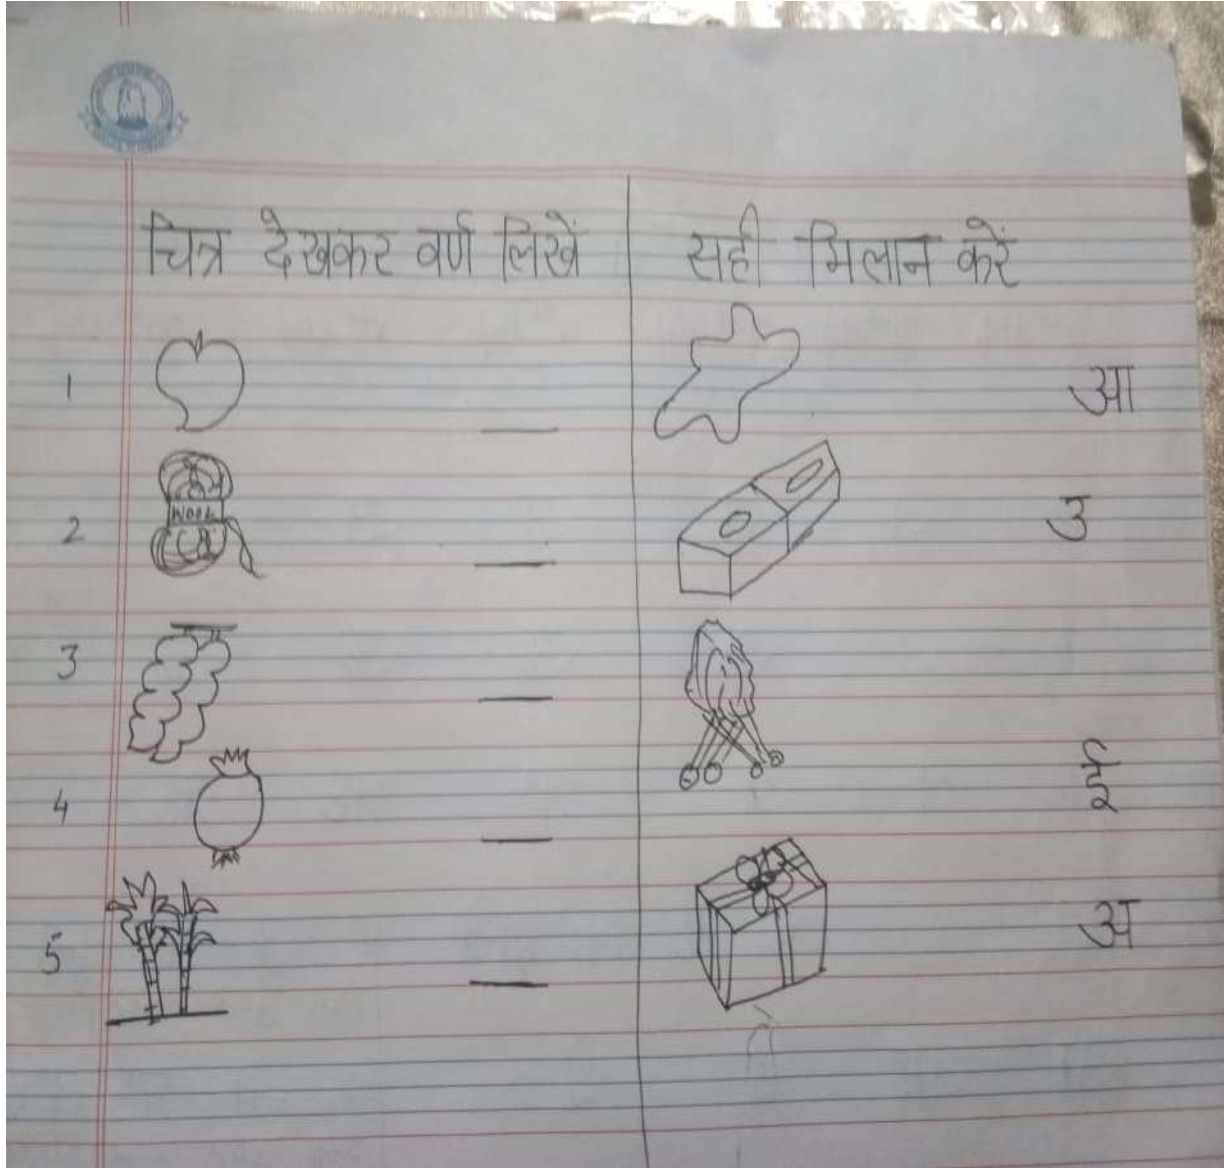 चित्र देखकर वर्ण लिखें
1
2
WOOL
3
4
5
सही मिलान करें
आ
उ
ई
अ